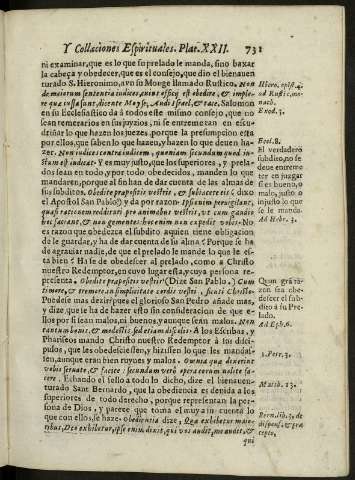 Y Collaciones Espirituales. Plat. XXII. 731
ni examinar, que es lo que su prelado le manda, sino baxar
la cabeça y obedecer, que es el consejo, que dio el bienauen
turado S. Hieronimo, a vn su Monge llamado Rustico. Non
de maiorum sententia iudices, cuius officij est obedire, & imple-
re quæ iussa sunt, dicente Moyse, Audi Israel, & tace. Salomon
en su Ecclesiastico da à todos este mismo consejo, que no
sean temerarios en sus juyzios, ni se entremetan en escu-
driñar lo que hazen los juezes. porque la presumpcion està
por ellos, que saben lo que hazen, y hazen lo que deuen ha-
zer. Non iudices contra iudicem, quoniam secundum quod iu-
stum est iudicat. Y es muy justo, que los superiores, y prela-
dos sean en todo, y por todo obedecidos, manden lo que
mandaren, porque al fin han de dar cuenta de las almas de
sus subditos. Obedite præpositis vestris, & subiacete eis (dize
el Apostol San Pablo) y da por razon. Ipsi enim peruigilant,
quasi rationem reddituri pro animabus vestris, vt cum gaudio
hoc faciant, & non gementes: hoc enim non expedit vobis. No
es razon que obedezca el subdito a quien tiene obligacion
de le guardar, y ha de dar cuenta de su alma? Porque se ha
de agrauiar nadie, de que el prelado le mande lo que le es-
ta bien? Ha se de obedescer al prelado, como a Christo
nuestro Redemptor, en cuyo lugar esta, y cuya persona re-
presenta. Obedite præpositis vestris (Dize San Pablo.) Cum
timore, & tremore in simplicitate cordis vestri, sicut Christo.
Puedese mas dezir? pues el glorioso San Pedro añade mas,
y dize que se ha de hazer esto sin consideracion de que e-
llos por si sean malos, ni buenos, y aunque sean malos. Non
tantum bonis, & modestis, sed etiam discolis. A los Escribas, y
Phariseos mando Christo nuestro Redemptor à los dici-
pulos, que les obedesciessen, y hiziessen lo que les mandas-
sen, aunque eran bien ruynes y malos. Omnia quæ dixerint
vobis seruate, & facite: secundum verò opera eorum nolite fa-
cere. Echando el sello a todo lo dicho, dize el bienauen-
turado Sant Bernardo, que la obediencia es deuida a los
superiores de todo derecho, porque representan la per-
sona de Dios, y parece que toma el muy a su cuenta lo
que con ellos, se haze. Obedientia dize, Quæ exhibetur maio-
ribus, Deo exhibetur, ipse enim dixit, qui vos audit, me audit, &
qui
Hiero. epist. 4.
ad Rustic. mo-
nach.
Exod. 3.
Eccl. 8.
El verdadero
subdito, no se
deue entreme
ter en juzgar
si es bueno, o
malo, justo o
injusto lo que
se le manda.
Ad Hebr. 3.
Quan gra ra-
zon sea obe-
descer el sub-
dito à su Pre-
lado.
Ad Eph. 6.
1. Petr. 3.
Matth. 23.
Bern. lib. 3. de
dispens. & præ
cepto,